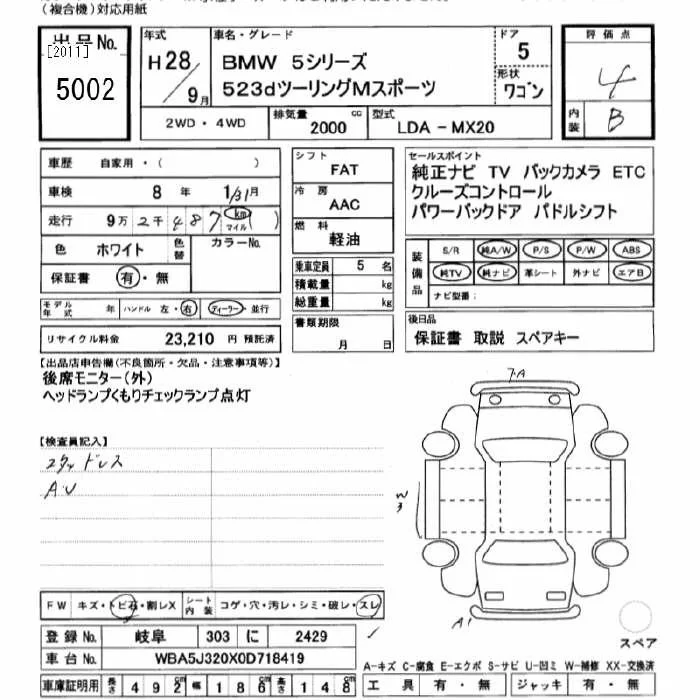 (複合機)対応用紙
出品No.
[2011]
5002
年式
H28/9月
車名・グレード
BMW 5シリーズ
523dツーリングMスポーツ
ドア
5
形状
ワゴン
評価点
4
内装
B
2WD・4WD
排気量
2000 cc
型式
LDA - MX20
車歴 自家用・( )
車検 8年 1/31月
走行 9万2千487 km マイル ( )
色 ホワイト 色替 カラーNo.
保証書 有・無
モデル年式 年 ハンドル 左・右 ディーラー・並行
リサイクル料金 23,210 円 預託済
シフト
FAT
冷房
AAC
燃料
軽油
乗車定員 5 名
積載量 kg
総重量 kg
書類期限
月 日
セールスポイント
純正ナビ TV バックカメラ ETC
クルーズコントロール
パワーバックドア パドルシフト
装備品
S/R 純A/W P/S P/W ABS
純TV 純ナビ 革シート 外ナビ エアB
ナビ型番:
後日品
保証書 取説 スペアキー
【出品店申告欄(不良箇所・欠品・注意事項等)】
後席モニター(外)
ヘッドランプくもりチェックランプ点灯
【検査員記入】
スタッドレス
A.U
FW キズ・トビ石・割レX シート内装 コゲ・穴・汚レ・シミ・破レ・スレ
登録No. 岐阜 303 に 2429
車台No. WBA5J320X0D718419
車庫証明用 長さ 492cm 幅 186cm 高さ 148cm
W3
A1
スペア
A-キズ C-腐食 E-エクボ S-サビ U-凹ミ W-補修 XX-交換済
工具 有・無 ジャッキ 有・無